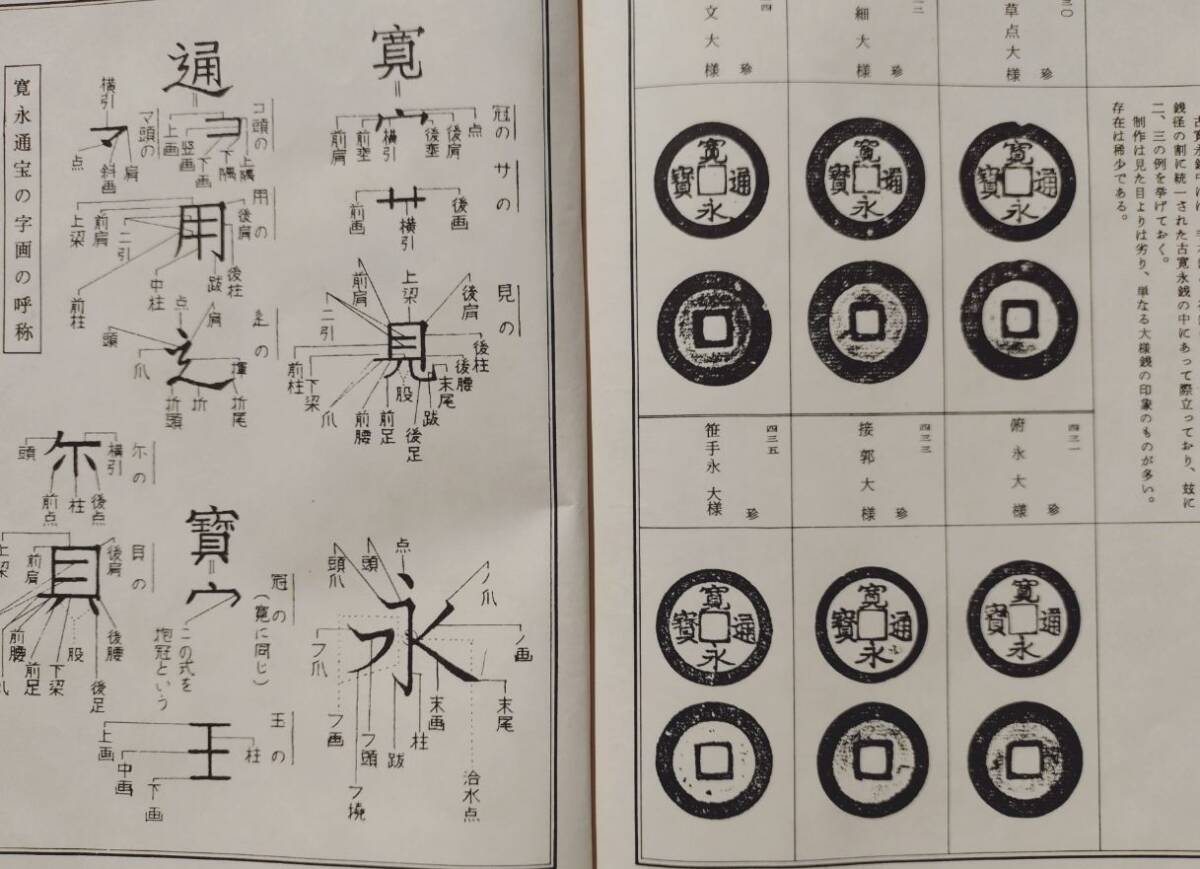 寛永通宝の字画の呼称
寛
冠の
点
後肩
後垂
横引
前垂
前肩
サの
後画
横引
前画
見の
後肩
上梁
前肩
二引
後柱
後腰
末尾
跋
後足
股
前足
前腰
爪
下梁
前柱
通
コ頭の
上隅
下隅
下画
竪画
上画
マ頭の
横引
肩
斜画
点
用の
後肩
二引
前肩
上梁
後柱
跋
中柱
前柱
辶の
肩
点
頭
爪
折尾
折
折頭
永
点
頭
頭爪
ノ爪
ノ画
フ爪
末尾
末画
柱
跋
フ頭
フ画
フ撓
治水点
寶
冠の
(寛に同じ)
この式を
抱冠という
尓の
横引
頭
後点
柱
前点
貝の
後肩
前肩
上梁
後腰
後足
股
下梁
前足
前腰
爪
王の
柱
上画
中画
下画
銭径の割に統一された古寛永銭の中にあって際立っており、玆に
二、三の例を挙げておく。
制作は見た目よりは劣り、単なる大様銭の印象のものが多い。
存在は稀少である。
草点大様
珍
細大様
珍
文大様
珍
寛永通寳
寛永通寳
寛永通寳
四三一
俯永大様
珍
四三三
接郭大様
珍
四三五
笹手永大様
珍
寛永通寳
寛永通寳
寛永通寳